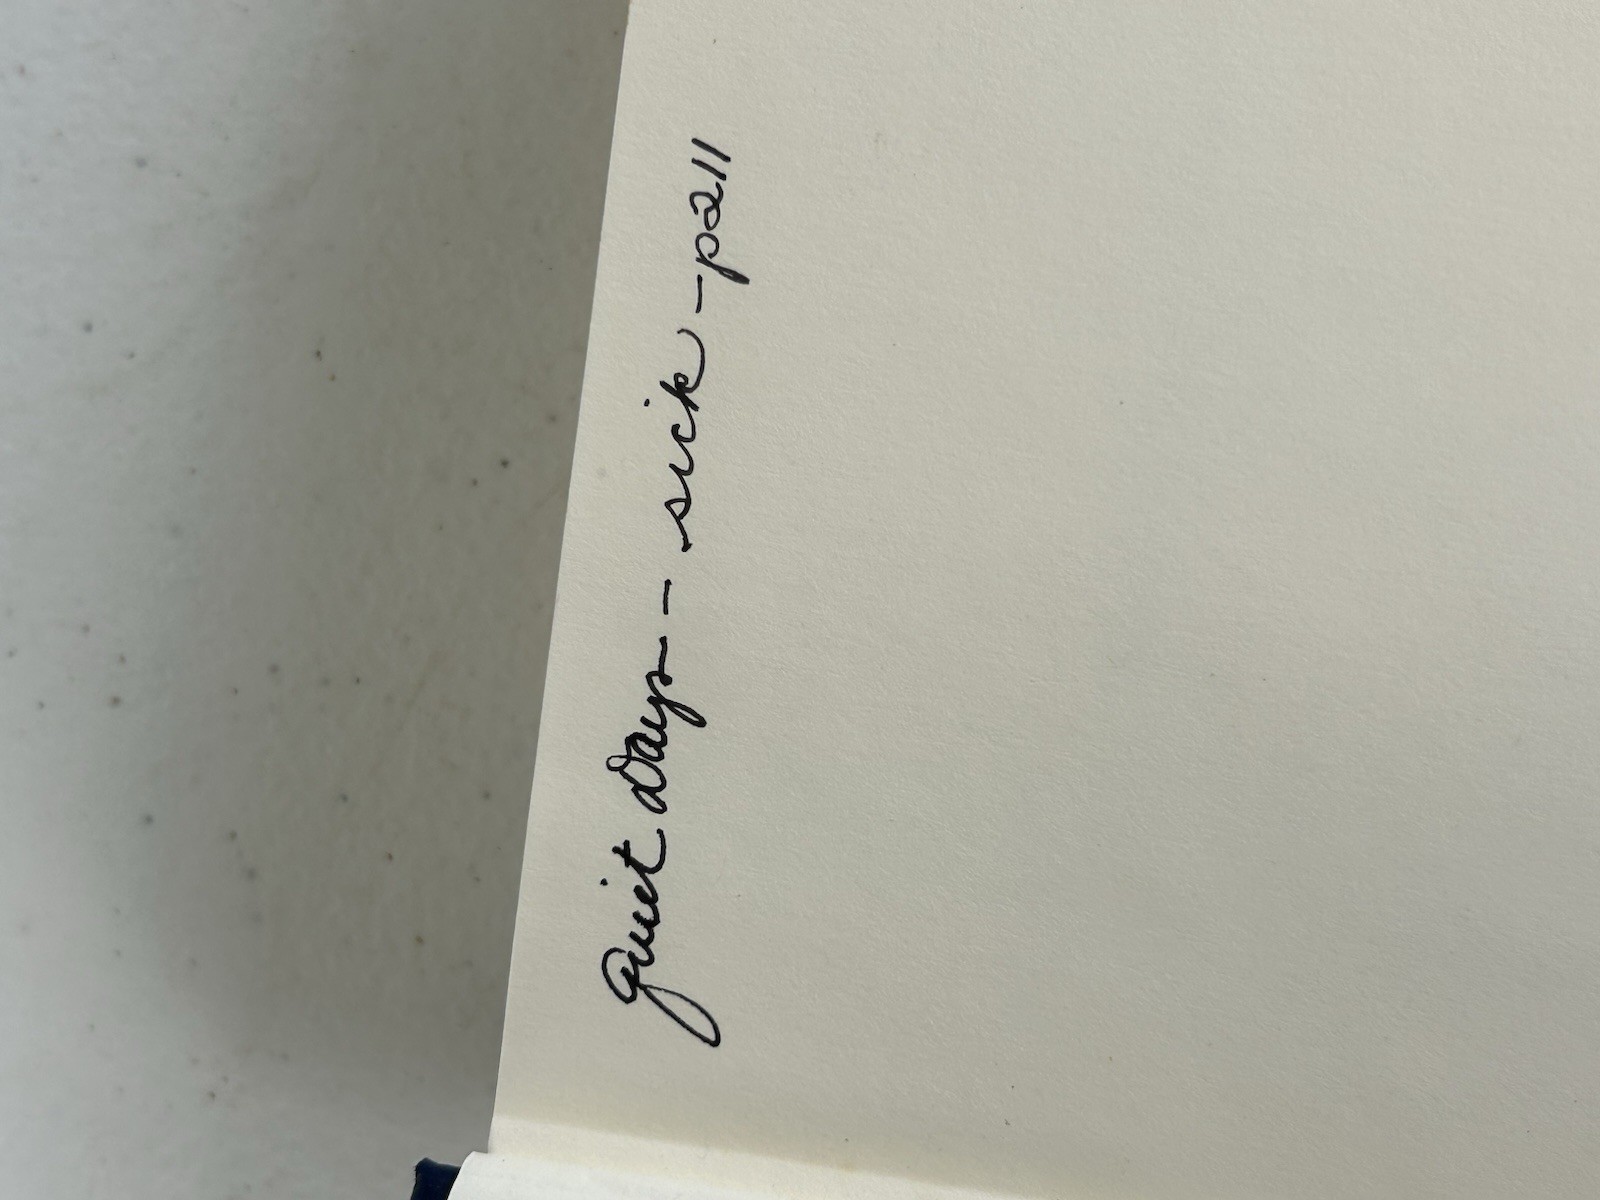 Quiet Days - sick - p211